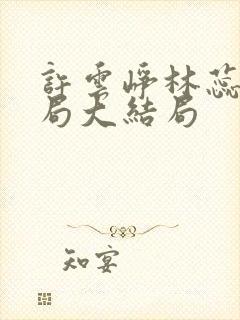 許雲崢林蕊
局大結局
知宴